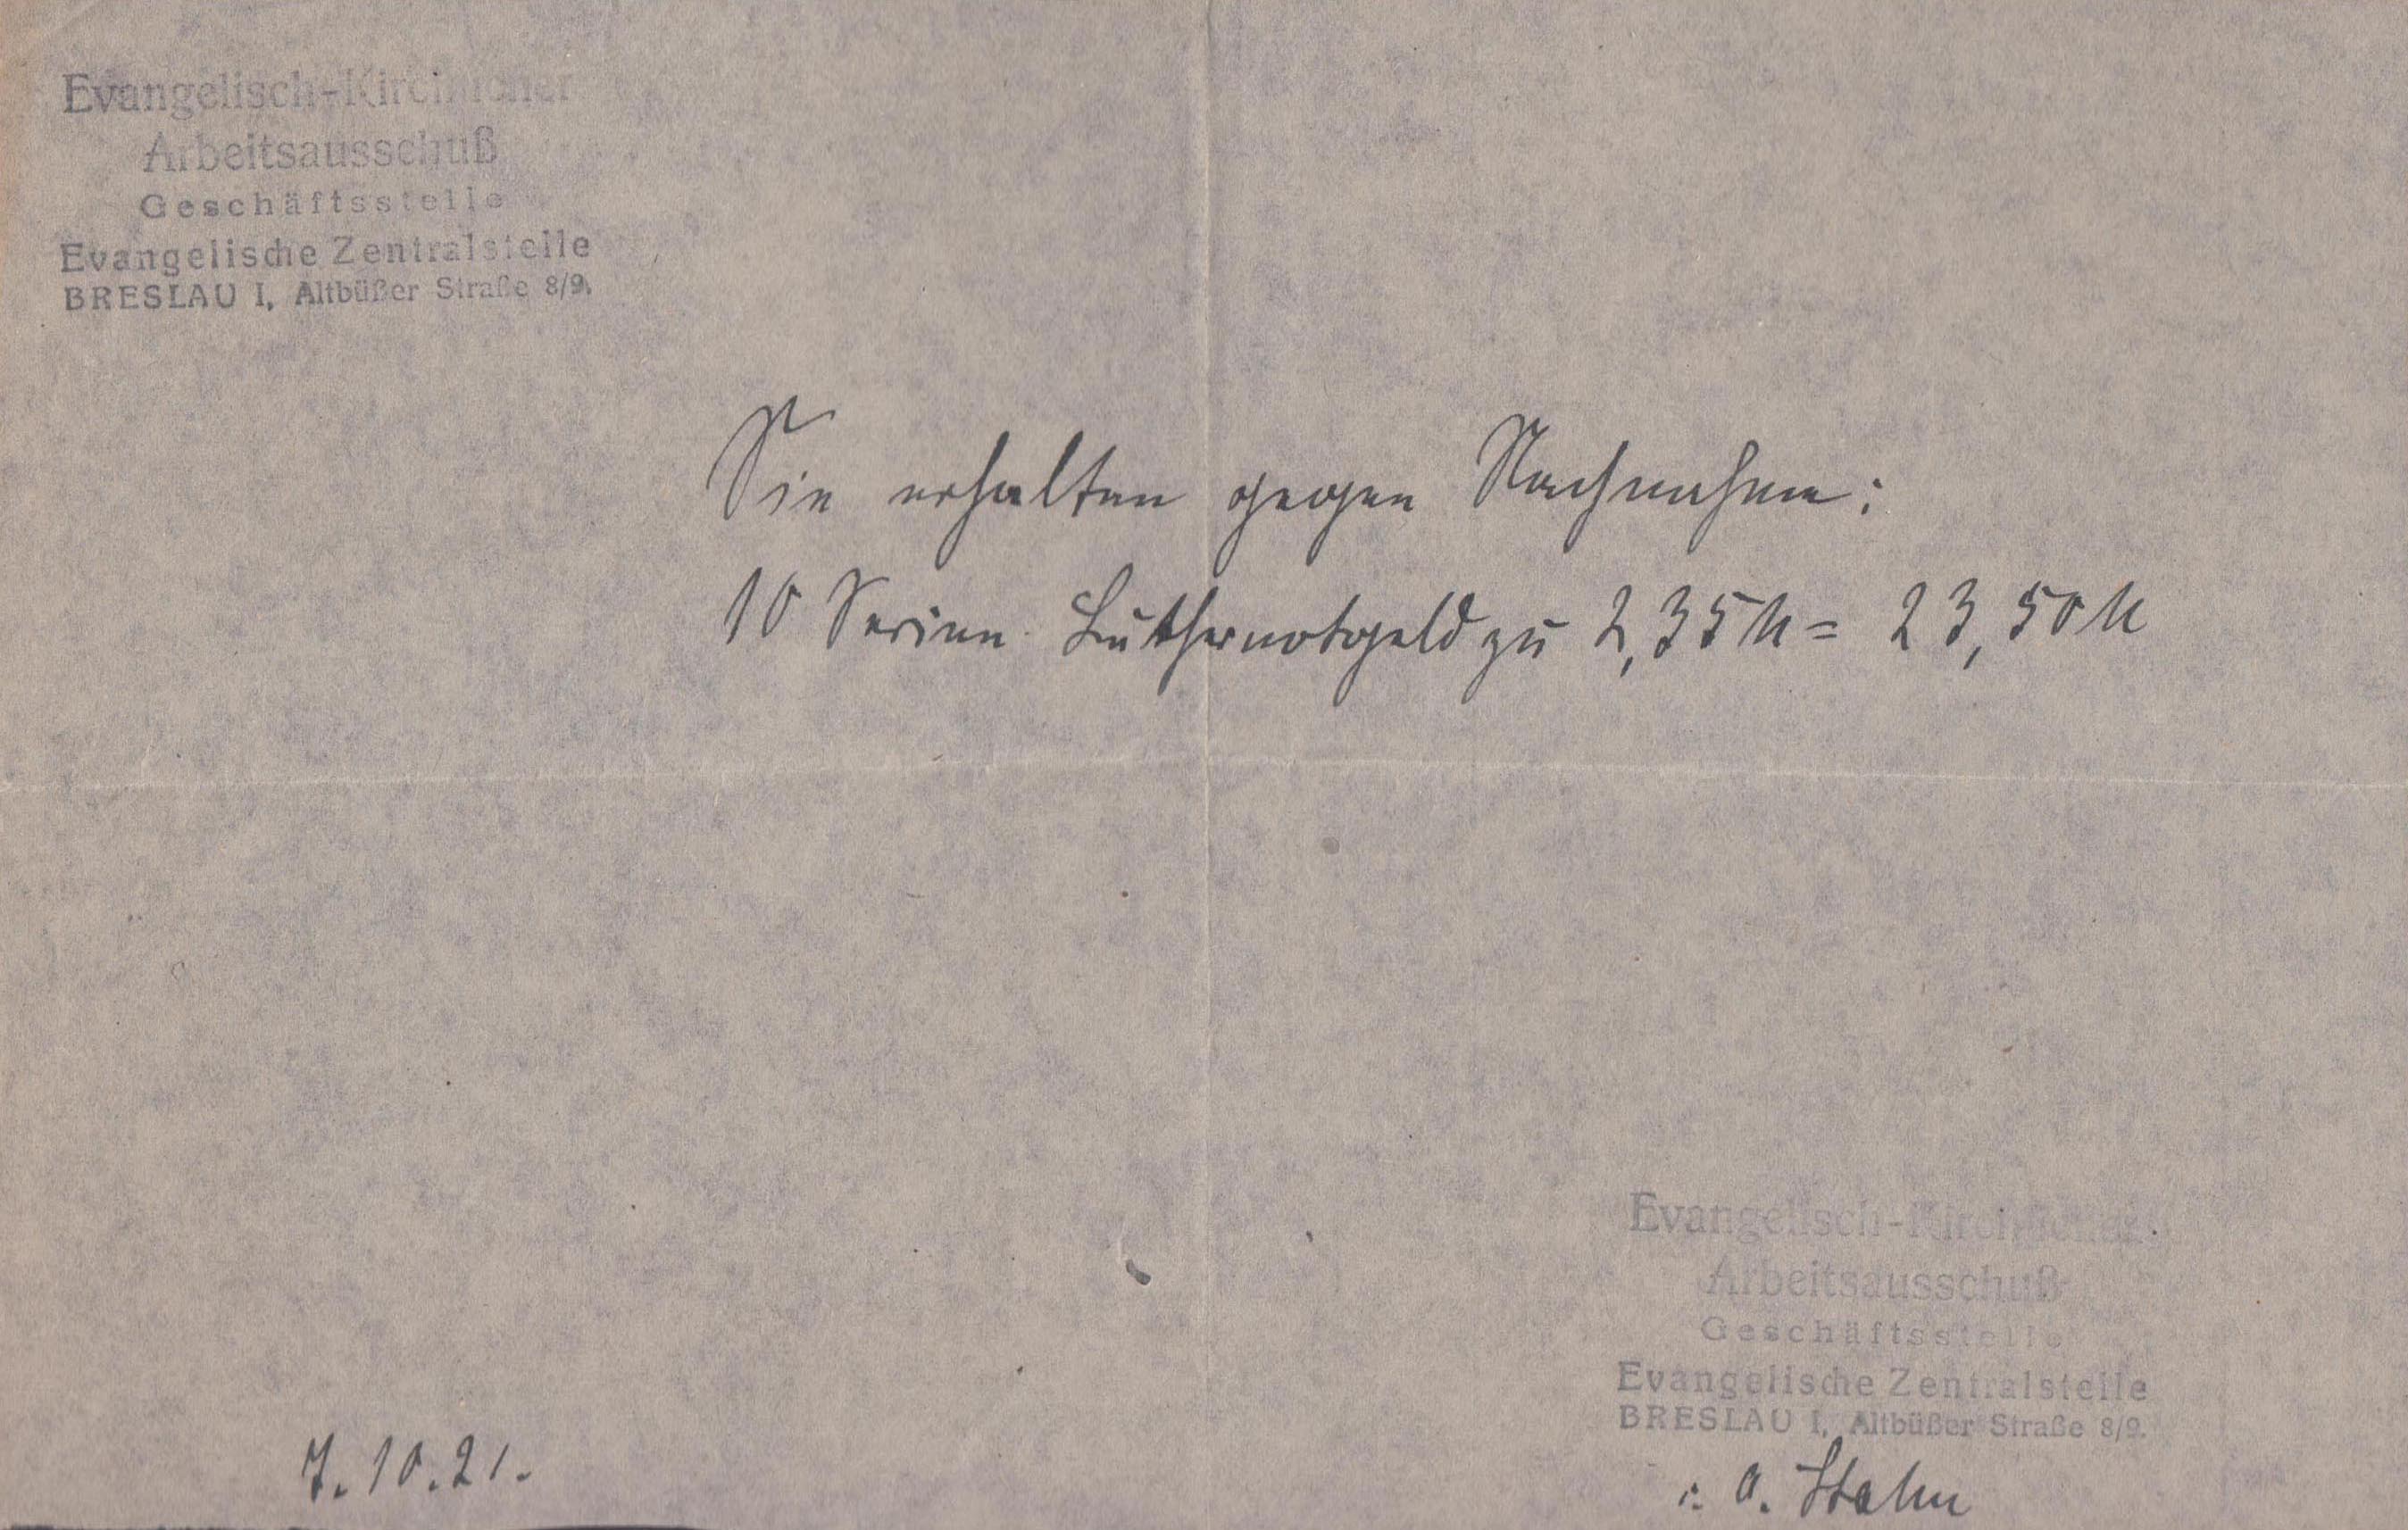 Evangelisch-Kirchlicher
Arbeitsausschuß
Geschäftsstelle
Evangelische Zentralstelle
BRESLAU I, Altbüßer Straße 8/9.
Sie erhalten gegen Nachnahme:
10 Serien Luthernotgeld zu 2,35 M = 23,50 M
Evangelisch-Kirchlicher
Arbeitsausschuß
Geschäftsstelle
Evangelische Zentralstelle
BRESLAU I, Altbüßer Straße 8/9.
7.10.21.
i. A. Stahn